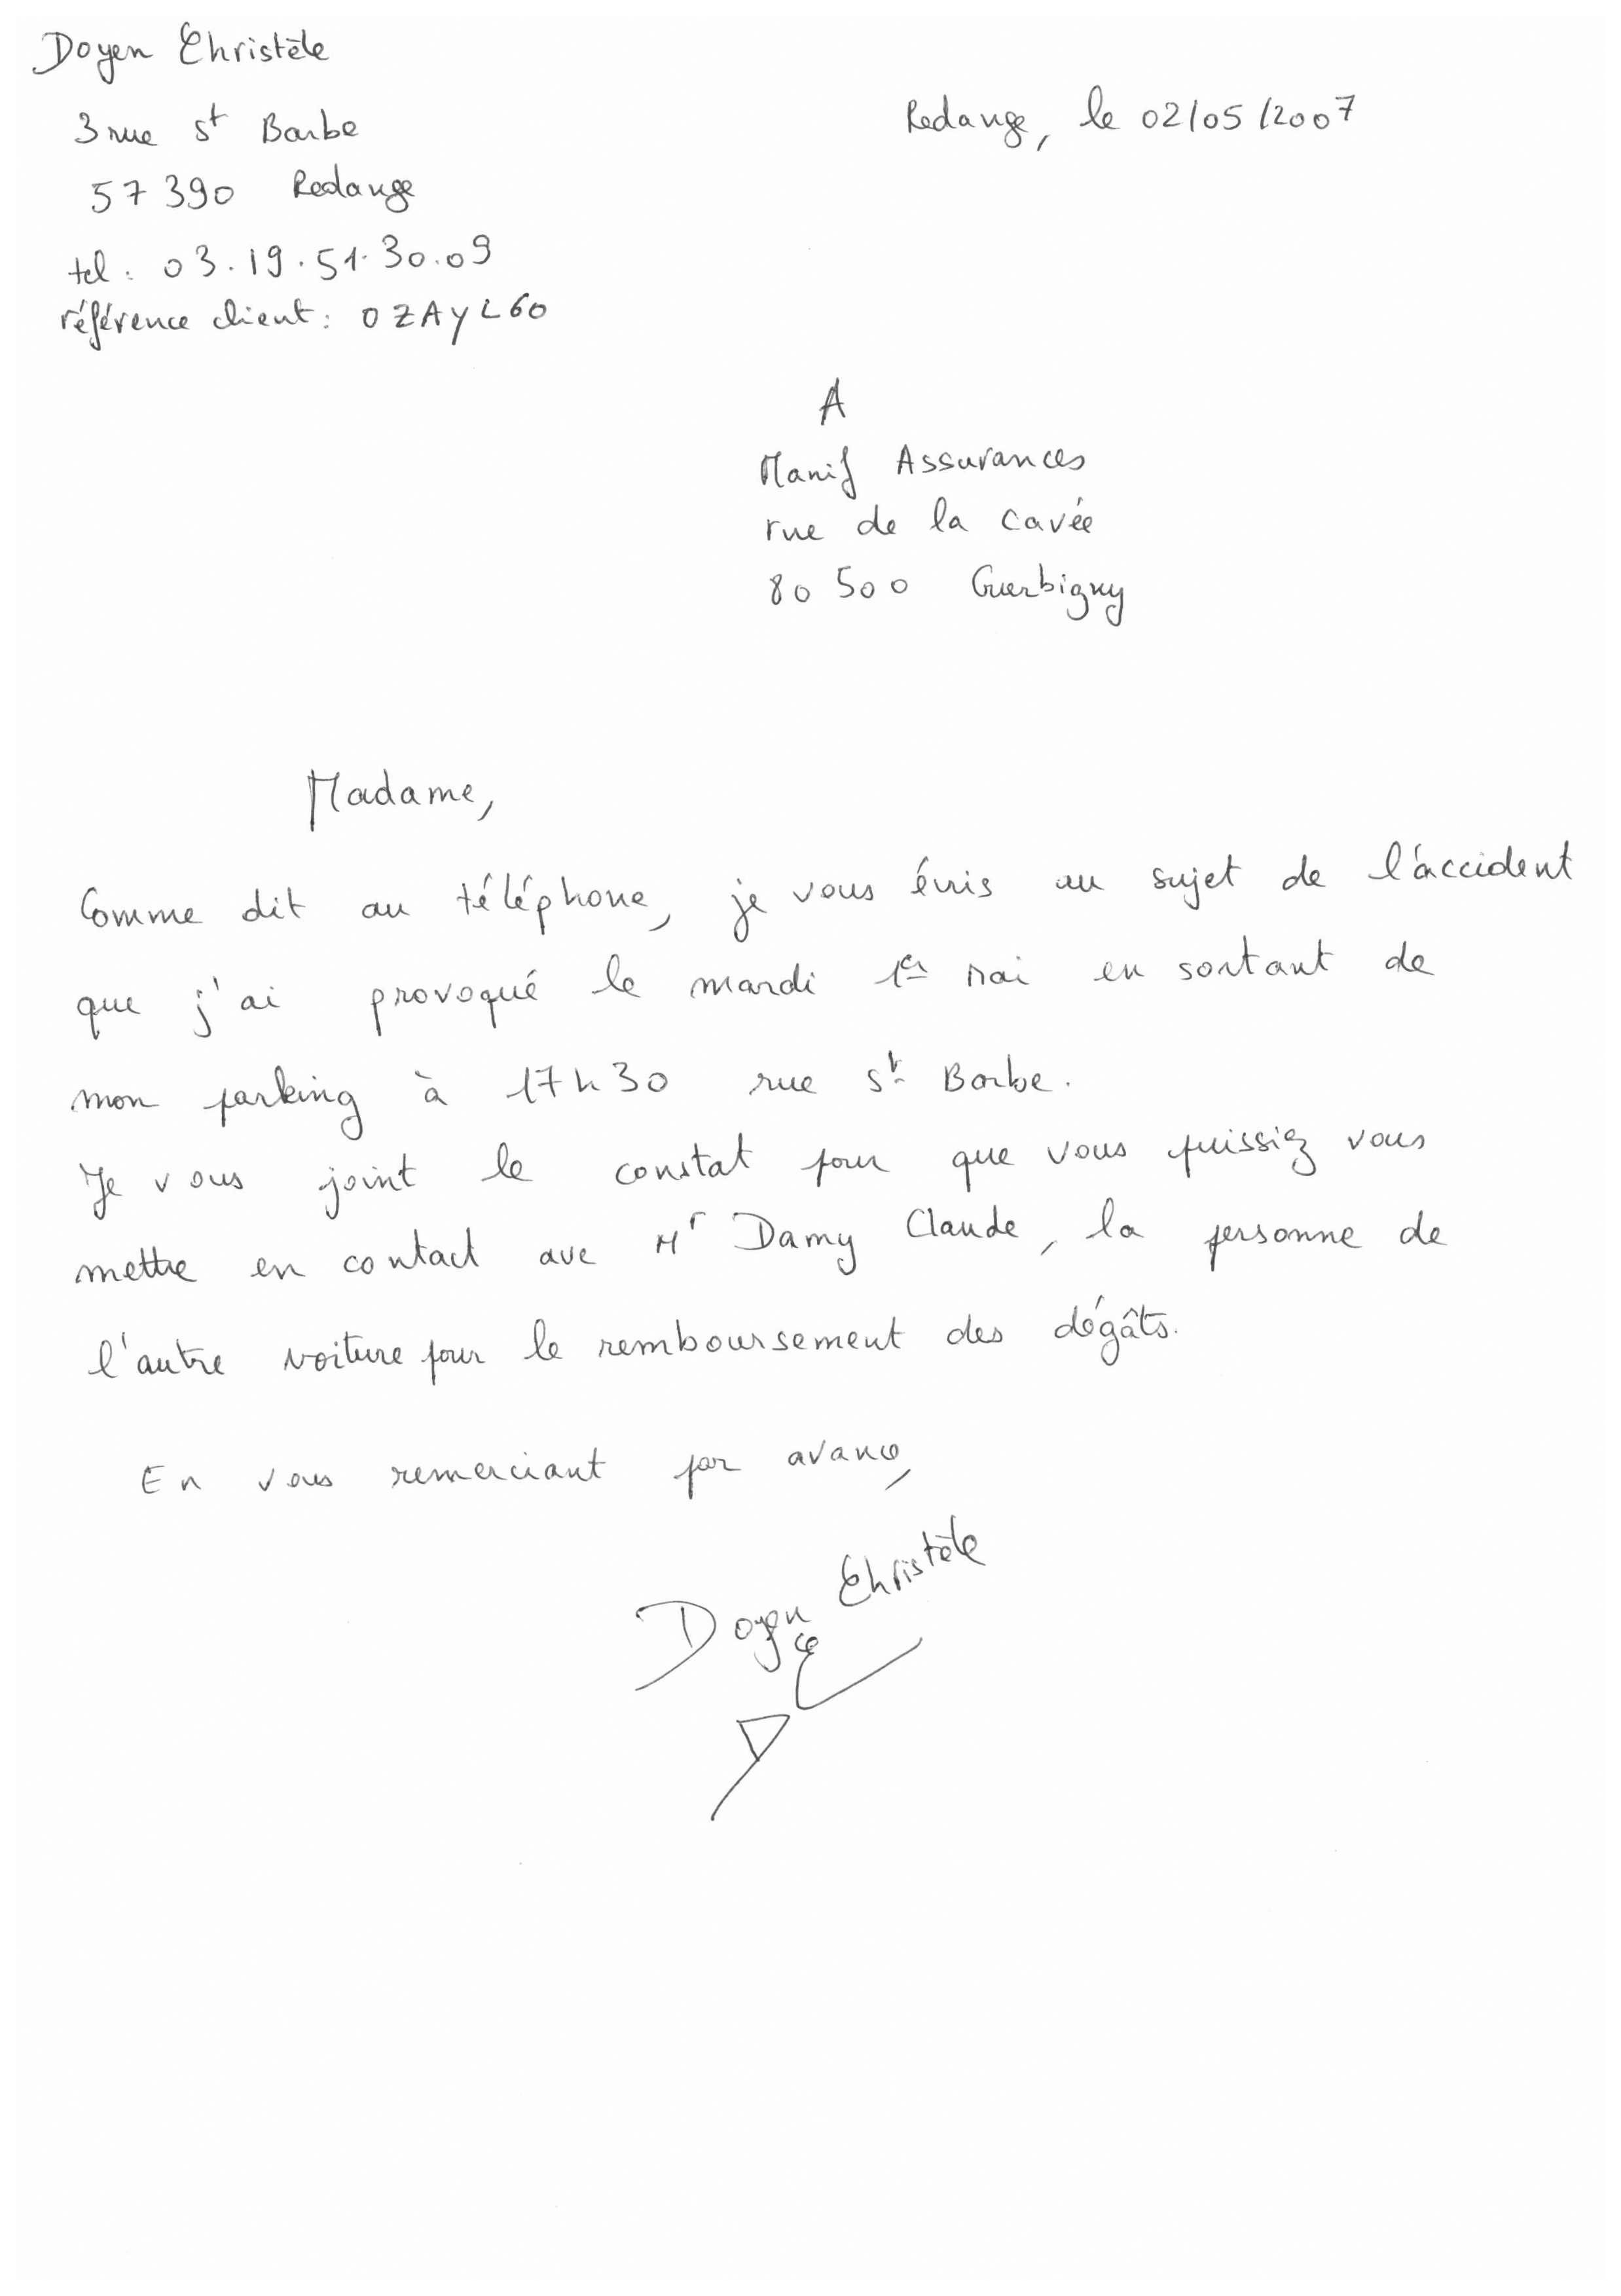 Doyen Christèle
3 rue St Barbe
57390 Redange
tel : 03.19.51.30.09
référence client : OZAYL60
Redange, le 02/05/2007
A
Manif Assurances
rue de la cavée
80500 Guerbigny
Madame,
Comme dit au téléphone, je vous écris au sujet de l'accident
que j'ai provoqué le mardi 1er Mai en sortant de
mon parking à 17h30 rue St Barbe.
Je vous joint le constat pour que vous puissiez vous
mettre en contact avec Mr Damy Claude, la personne de
l'autre voiture pour le remboursement des dégâts.
En vous remerciant par avance,
Doyen Christèle